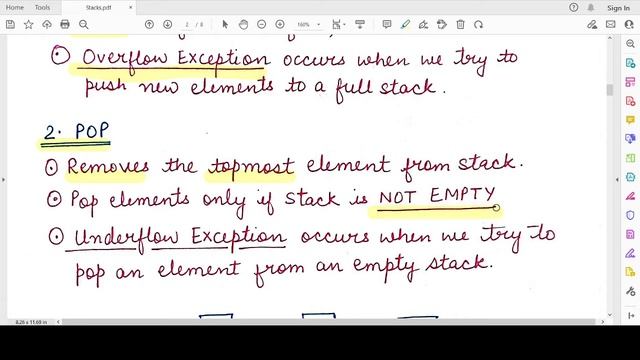 Home Tools Stacks.pdf Sign In
2 / 8 160%
Overflow Exception occurs when we try to
push new elements to a full stack.
2. POP
Removes the topmost element from stack.
Pop elements only if stack is NOT EMPTY
Underflow Exception occurs when we try to
pop an element from an empty stack.
8.26 x 11.69 in